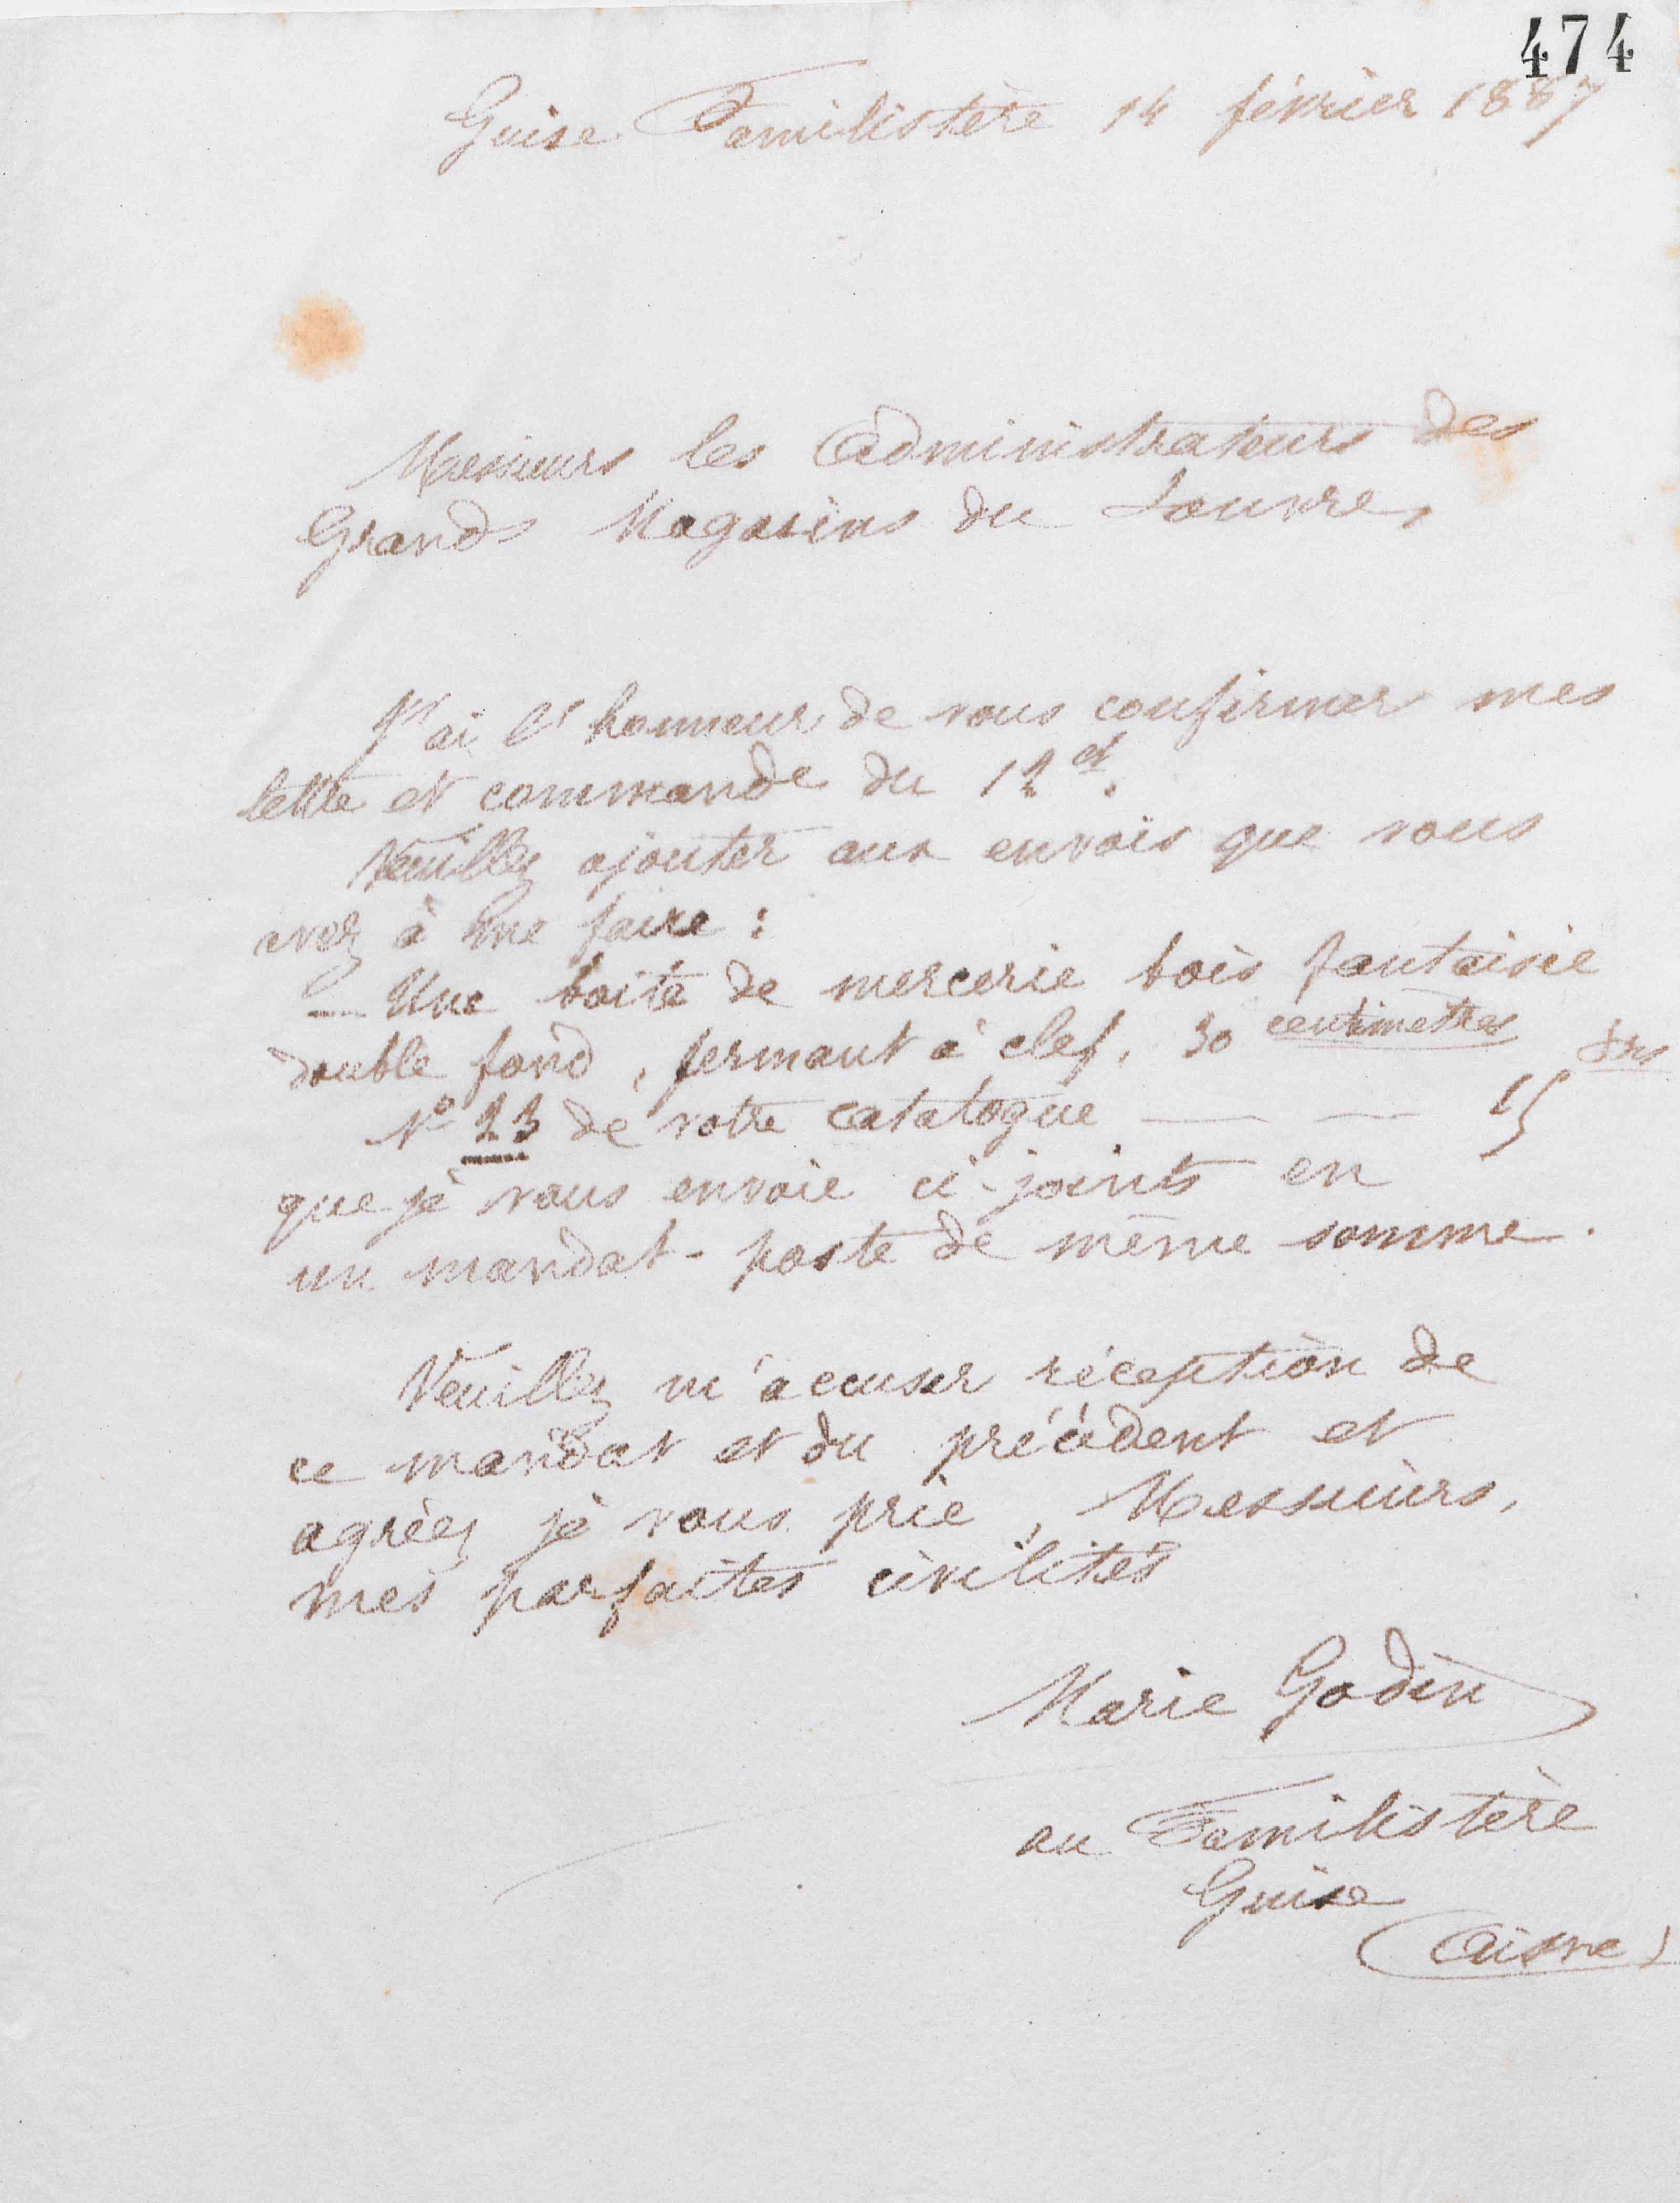 474
Guise Familistère 14 février 1887
Messieurs les Administrateurs des
Grands Magasins du Louvre,
J'ai l'honneur de vous confirmer mes
lettre et commande du 12 ct.
Veuillez ajouter aux envois que vous
avez à me faire :
— Une boite de mercerie bois fantaisie
double fond, fermant à clef, 30 centimètres
frs
N° 23 de votre catalogue — — 15
que je vous envoie ci-joints en
un mandat-poste de même somme.
Veuillez m'accuser réception de
ce mandat et du précédent et
agréez je vous prie, Messieurs,
mes parfaites civilités
Marie Godin
au Familistère
Guise
(Aisne)